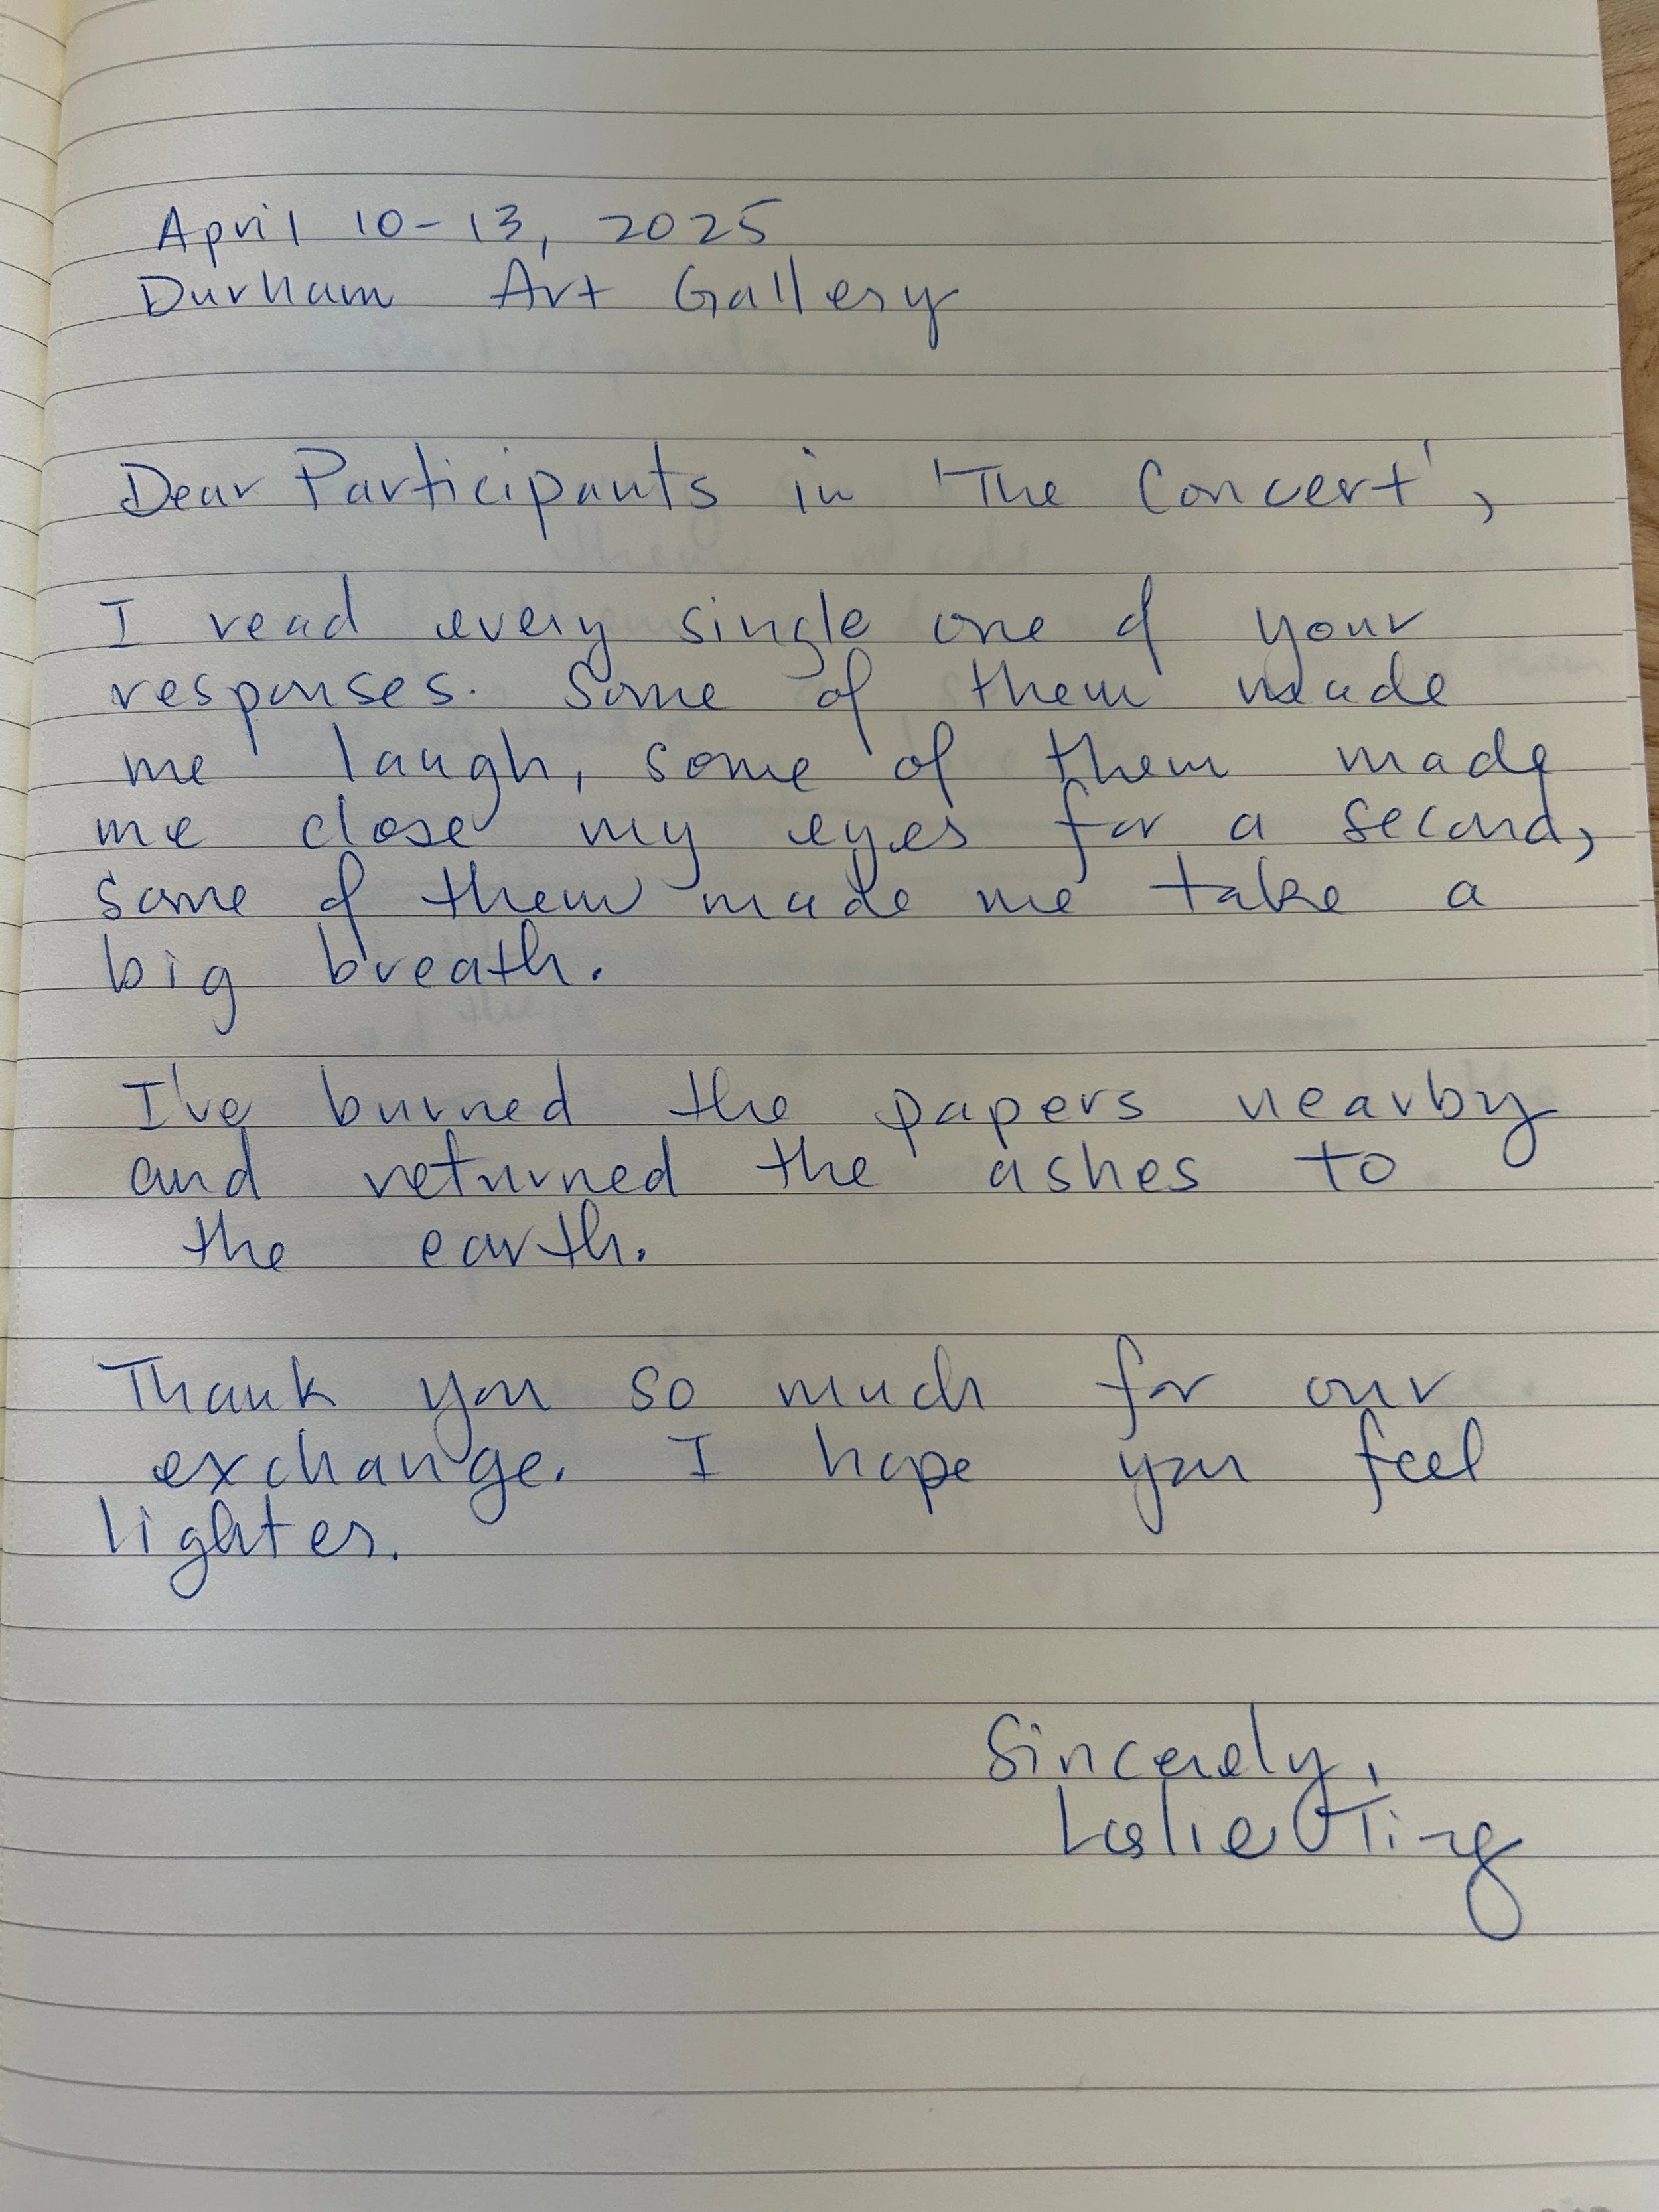 April 10-13, 2025
Durham Art Gallery
Dear Participants in 'The Concert',
I read every single one of your
responses. Some of them made
me laugh, some of them made
me close my eyes for a second,
some of them made me take a
big breath.
I've burned the papers nearby
and returned the ashes to
the earth.
Thank you so much for our
exchange. I hope you feel
lighter.
Sincerely,
Leslie Ting